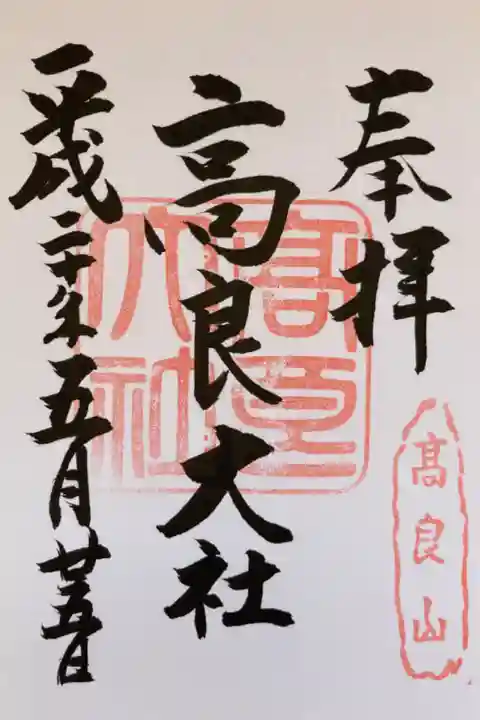 奉拝
髙良山
高良大社
高良大社
平成二十年五月廿五日